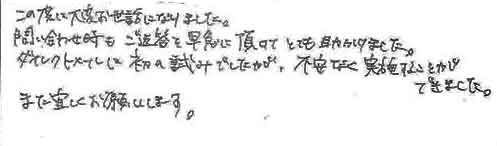 この度は大変お世話になりました。
問い合わせ時も ご返答を早急に頂けて とても助かりました。
ダイレクトメールは 初の試みでしたが、不安なく実施することが
できました。
また宜しくお願いします。